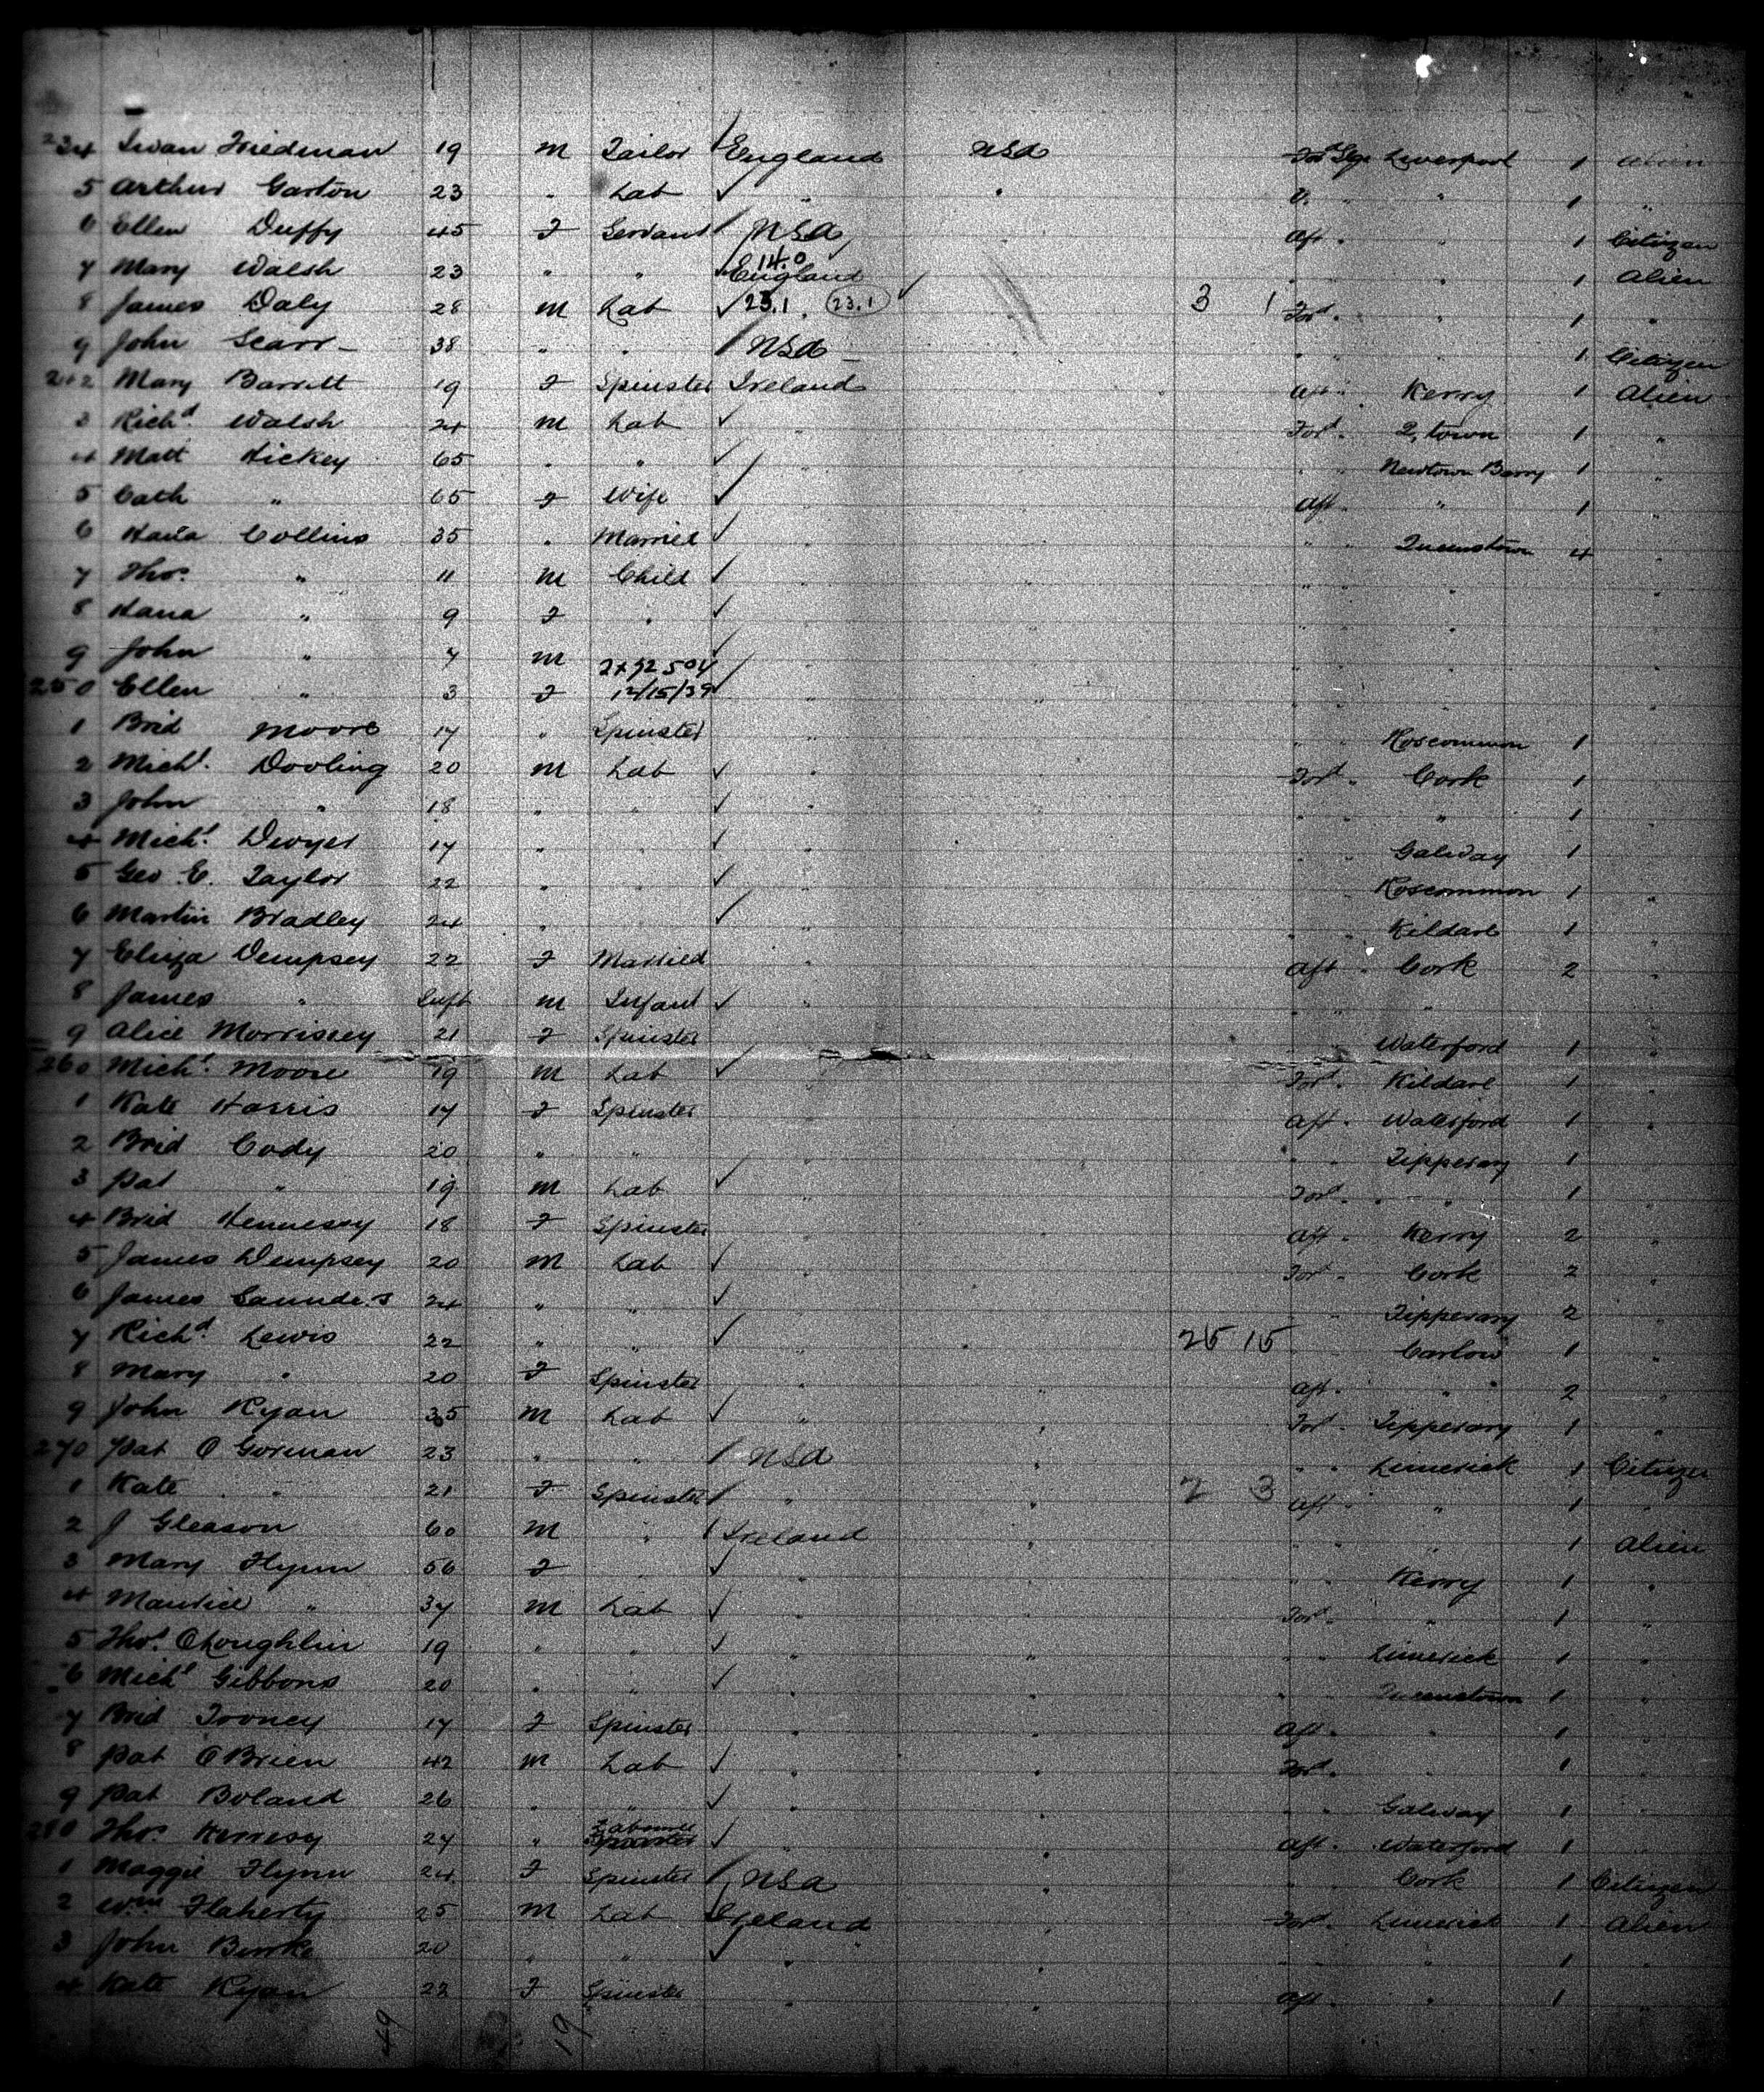 234 Iwan Friedman 19 m Tailor England USA For'd Stge Liverpool 1 Alien
5 Arthur Garton 23 " Lab " " " " 1 "
6 Ellen Duffy 45 F Servant USA Aft " " 1 Citizen
14.0
7 Mary Walsh 23 " " England " " 1 Alien
8 James Daly 28 m Lab 23.1. 23.1 3 1 For'd " " 1 "
9 John Scarr 38 " " USA " " 1 Citizen
242 Mary Barrett 19 F Spinster Ireland Aft " Kerry 1 Alien
3 Rich'd Walsh 24 m Lab " For'd " Q. town 1 "
4 Matt Hickey 65 " " " " Newtown Barry 1 "
5 Cath " 65 F Wife " Aft " 1 "
6 Collins 35 " Married " " Queenstown 4 "
7 Thos " 11 m Child " " "
8 Hana " 9 F " " " "
9 John " 7 m " " "
2x92504
250 Ellen " 3 F 12/15/39 " " "
1 Brid Moore 17 " Spinster " " Roscommon 1
2 Mich'l Dooling 20 m Lab " For'd " Cork 1
3 John " 18 " " " " " 1
4 Mich'l Dwyer 17 " " " " Galway 1
5 Geo E. Taylor 22 " " " Roscommon 1
6 Martin Bradley 24 " " " Kildare 1
7 Eliza Dempsey 22 F Married " Aft " Cork 2 "
8 James " Inft m Infant " " "
9 Alice Morrissey 21 F Spinster Waterford 1 "
260 Mich'l Moore 19 m Lab " For'd " Kildare 1 "
1 Kate Harris 17 F Spinster Aft " Waterford 1 "
2 Brid Cody 20 " " " " Tipperary 1 "
3 Pat " 19 m Lab " For'd " " 1 "
4 Brid Hennessy 18 F Spinster " Aft " Kerry 2 "
5 James Dempsey 20 m Lab " For'd " Cork 2 "
6 James Saunders 24 " " " " Tipperary 2 "
7 Rich'd Lewis 22 " " " 25 15 Carlow 1 "
8 Mary " 20 F Spinster " Aft " " 2 "
9 John Ryan 35 m Lab " For'd Tipperary 1 "
270 Pat O Gorman 23 " " USA " " Limerick 1 Citizen
1 Kate " 21 F Spinster " 2 3 Aft " " 1 "
2 J Gleason 60 m " Ireland " " 1 Alien
3 Mary Flynn 56 F " " " Kerry 1 "
4 Maurice " 37 m Lab " For'd " 1 "
5 Thos OLoughlin 19 " " " " Limerick 1 "
6 Mich'l Gibbons 20 " " " " Queenstown 1 "
7 Brid Tooney 17 F Spinster " Aft " " 1 "
8 Pat O'Brien 42 m Lab " For'd " 1 "
9 Pat Boland 26 " " " " Galway 1 "
280 Thos 27 " Labourer Spinster " Aft " Waterford 1 "
1 Maggie Flynn 24 F Spinster USA " Cork 1 Citizen
2 Wm Flaherty 25 m Lab Ireland For'd " Limerick 1 Alien
3 John Burke 20 " " " " 1 "
4 Kate Ryan 22 F Spinster " Aft " " 1 "
49 19